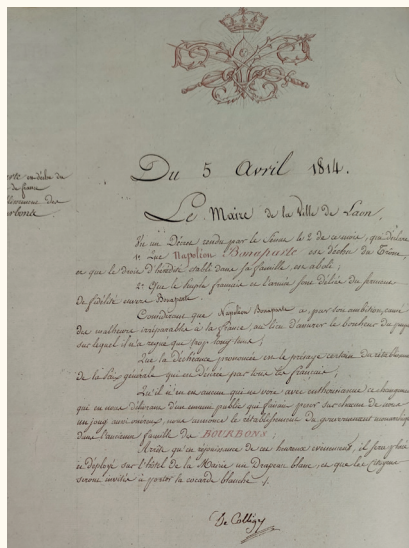 arte en déchu du
de france
blissement des
urbons
Du 5 Avril 1814.
Le Maire de la Ville de Laon,
Vu un Décret rendu par le Sénat le 2 de ce mois, qui Déclare
1º. Que Napoléon Bonaparte est déchu du Trône,
et que le droit d'hérédité établi dans sa famille, est aboli;
2º. Que le peuple français et l'armée sont déliés du serment
de fidélité envers Bonaparte.
Considérant que Napoléon Bonaparte a par son ambition, causé
des malheurs irréparables à la france, au lieu d'assurer le bonheur du peuple
sur lequel il n'a régné que trop long-tems;
Que la déchéance prononcée est le présage certain du rétablissement
de la paix générale qui est désirée par tous les français;
Qu'il n'en est aucun qui ne voie avec enthousiasme ce changement
qui en nous délivrant d'un ennemi public qui faisait peser sur chacun de nous
un joug nous annonce le rétablissement du gouvernement monarchique
dans l'ancienne famille des BOURBONS;
Arrête qu'en réjouissance de ces heureux événemens, il sera placé
et déployé sur l'hôtel de la Mairie un Drapeau blanc, et que les Citoyens
seront invités à porter la cocarde blanche.